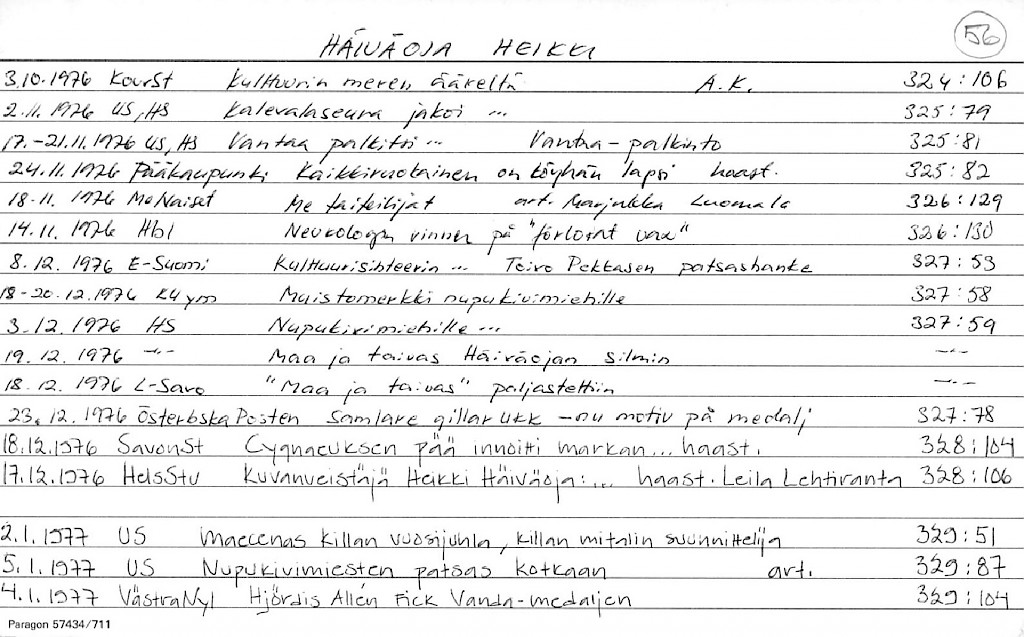 56
HÄIVÄOJA HEIKKI
3.10.1976 KourSt Kulttuurin meren ääreltä A.K. 324:106
2.11.1976 US, HS Kalevalaseura jakoi ... 325:79
17.-21.11.1976 US, HS Vantaa palkitsi ... Vantaa-palkinto 325:81
24.11.1976 Pääkaupunki Kaikkiruokainen on köyhän lapsi haast. 325:82
18.11.1976 MeNaiset Me taiteilijat art. Marjukka Luomala 326:129
14.11.1976 Hbl vinner på 326:130
8.12.1976 E-Suomi Kulttuurisihteerin ... Toivo Pekkasen patsashanke 327:53
18-20.12.1976 KU ym Muistomerkki nupukivimiehille 327:58
3.12.1976 HS Nupukivimiehille ... 327:59
19.12.1976 -"- Maa ja taivas Häiväojan silmin -"-
18.12.1976 L-Savo "Maa ja taivas" paljastettiin -"-
23.12.1976 Österbska Posten Samlare gillar UKK - nu motiv på medalj 327:78
18.12.1976 SavonSt Cygnaeuksen pää innoitti markan... haast. 328:104
17.12.1976 HelsStu Kuvanveistäjä Heikki Häiväoja:... haast. Leila Lehtiranta 328:106
2.1.1977 US Maecenas killan vuosijuhla, killan mitalin suunnittelija 329:51
5.1.1977 US Nupukivimiesten patsas Kotkaan art. 329:87
4.1.1977 VästraNyl Hjördis Allén fick Vanda-medaljen 329:104
Paragon 57434/711